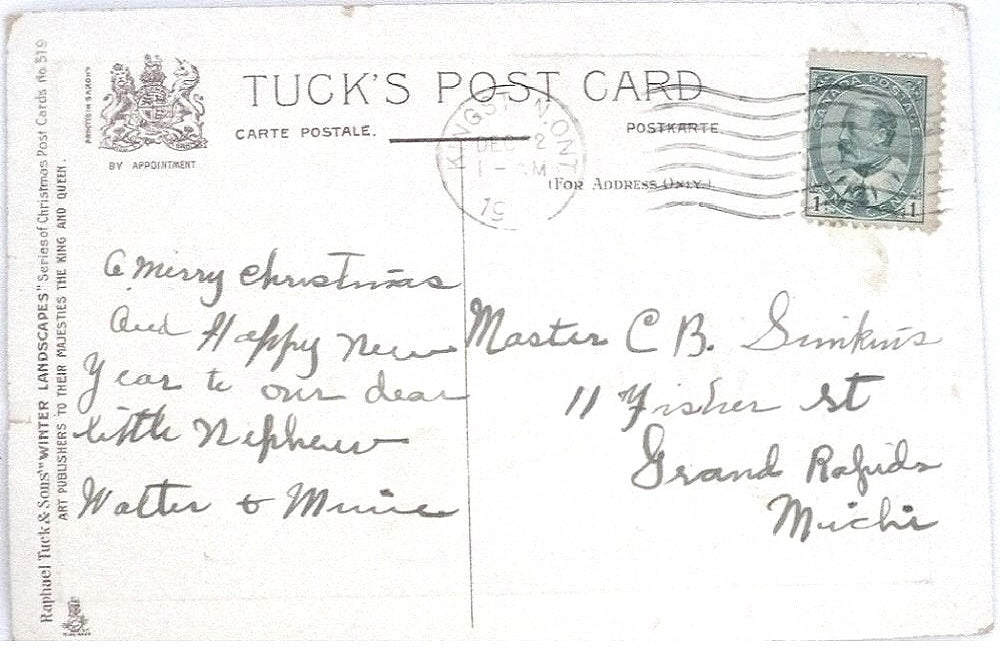 TUCK'S POST CARD
CARTE POSTALE.
POSTKARTE
(FOR ADDRESS ONLY.)
PRINTED IN SAXONY
BY APPOINTMENT
Raphael Tuck & Sons' "WINTER LANDSCAPES" Series of Christmas Post Cards No. 519
ART PUBLISHERS TO THEIR MAJESTIES THE KING AND QUEEN.
KINGSTON, ONT
DEC 2
1 - M
19
CANADA POSTAGE
1 1
A Merry Christmas
And Happy New
Year to our dear
little Nephew
Walter & Minie
Master C B. Simkins
11 Fisher St
Grand Rapids
Michi